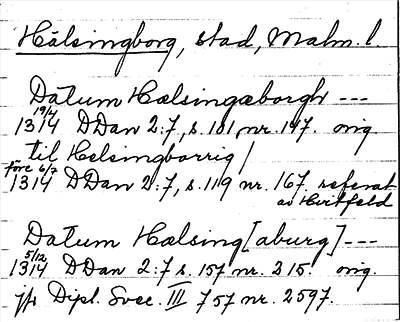 Hälsingborg, stad, Malm. l.
Datum Hælsingæborgh ---
19/4
1314 DDan 2:7, s. 101, nr. 147. orig
til Helsingborrig/
före 6/7
1314 DDan 2:7, s. 119 nr. 167. referat
av Hvitfeld
Datum Hælsing[aburg]---
5/12
1314 DDan 2:7 s. 157 nr. 215. orig.
jfr Dipl. Svec. III 757 nr. 2597.